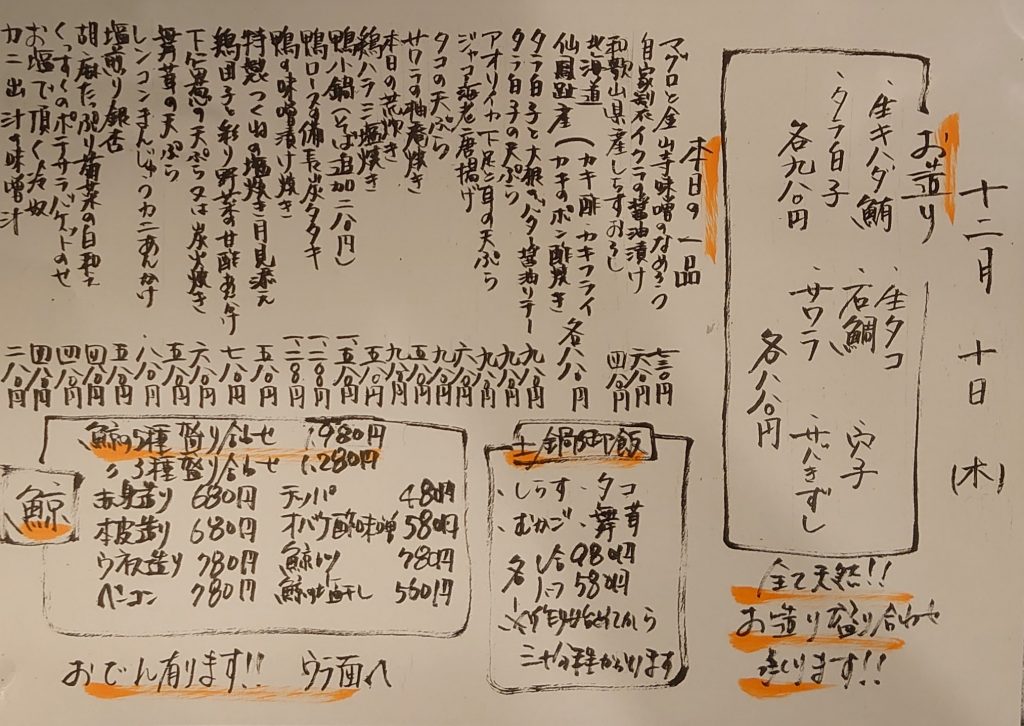 十二月 十日 (木)
お造り
・生キハダ鮪 ・生タコ
石鯛 穴子
・タラ白子 サワラ サバきずし
各九八〇円 各八八〇円
全て天然!!
お造り盛り合わせ
承ります!!
本日の一品
マグロと金山寺味噌のなめろう 七三〇円
自家製イクラの醤油漬け 六八〇円
和歌山県産しらすおろし 四八〇円
北海道
仙鳳趾産 (カキ酢・カキフライ
(カキのポン酢焼き 各八八〇円
タラ白子と大根のバター醤油ソテー 九八〇円
タラ白子の天ぷら 九八〇円
アオリイカ下足と耳の天ぷら 九八〇円
ジャコ海老唐揚げ 六八〇円
タコの天ぷら 九八〇円
サワラの柚庵焼き 九八〇円
本日の荒炊き 五八〇円
鶏ハラミ塩焼き 九八〇円
鴨小鍋(そば追加二八〇円) 一、五八〇円
鴨ロースの備長炭タタキ 一、二八〇円
鴨の味噌漬け焼き 一、二八〇円
特製つくねの塩焼き月見添え 五八〇円
鶏団子と彩り野菜甘酢あんかけ 七八〇円
下仁田葱の天ぷら又は炭火焼き 六八〇円
舞茸の天ぷら 五八〇円
レンコンまんじゅうカニあんかけ 八八〇円
塩煎り銀杏 五八〇円
胡麻たっぷり菊菜の白和え 四八〇円
くっすくのポテサラバゲットのせ 四八〇円
お塩で頂く冷奴 四八〇円
カニ出汁の味噌汁 二八〇円
土鍋御飯
・しらす ・タコ
・むかご ・舞茸
各 1合 980円
ハーフ 580円
鯨
鯨の5種盛り合せ 1,980円
〃3種盛り合せ 1,280円
赤身造り 680円 テッパ 480円
本皮造り 680円 オバケ酢味噌 580円
ウネ造り 780円 780円
ベーコン 780円 560円
おでん有ります!! ウラ面へ